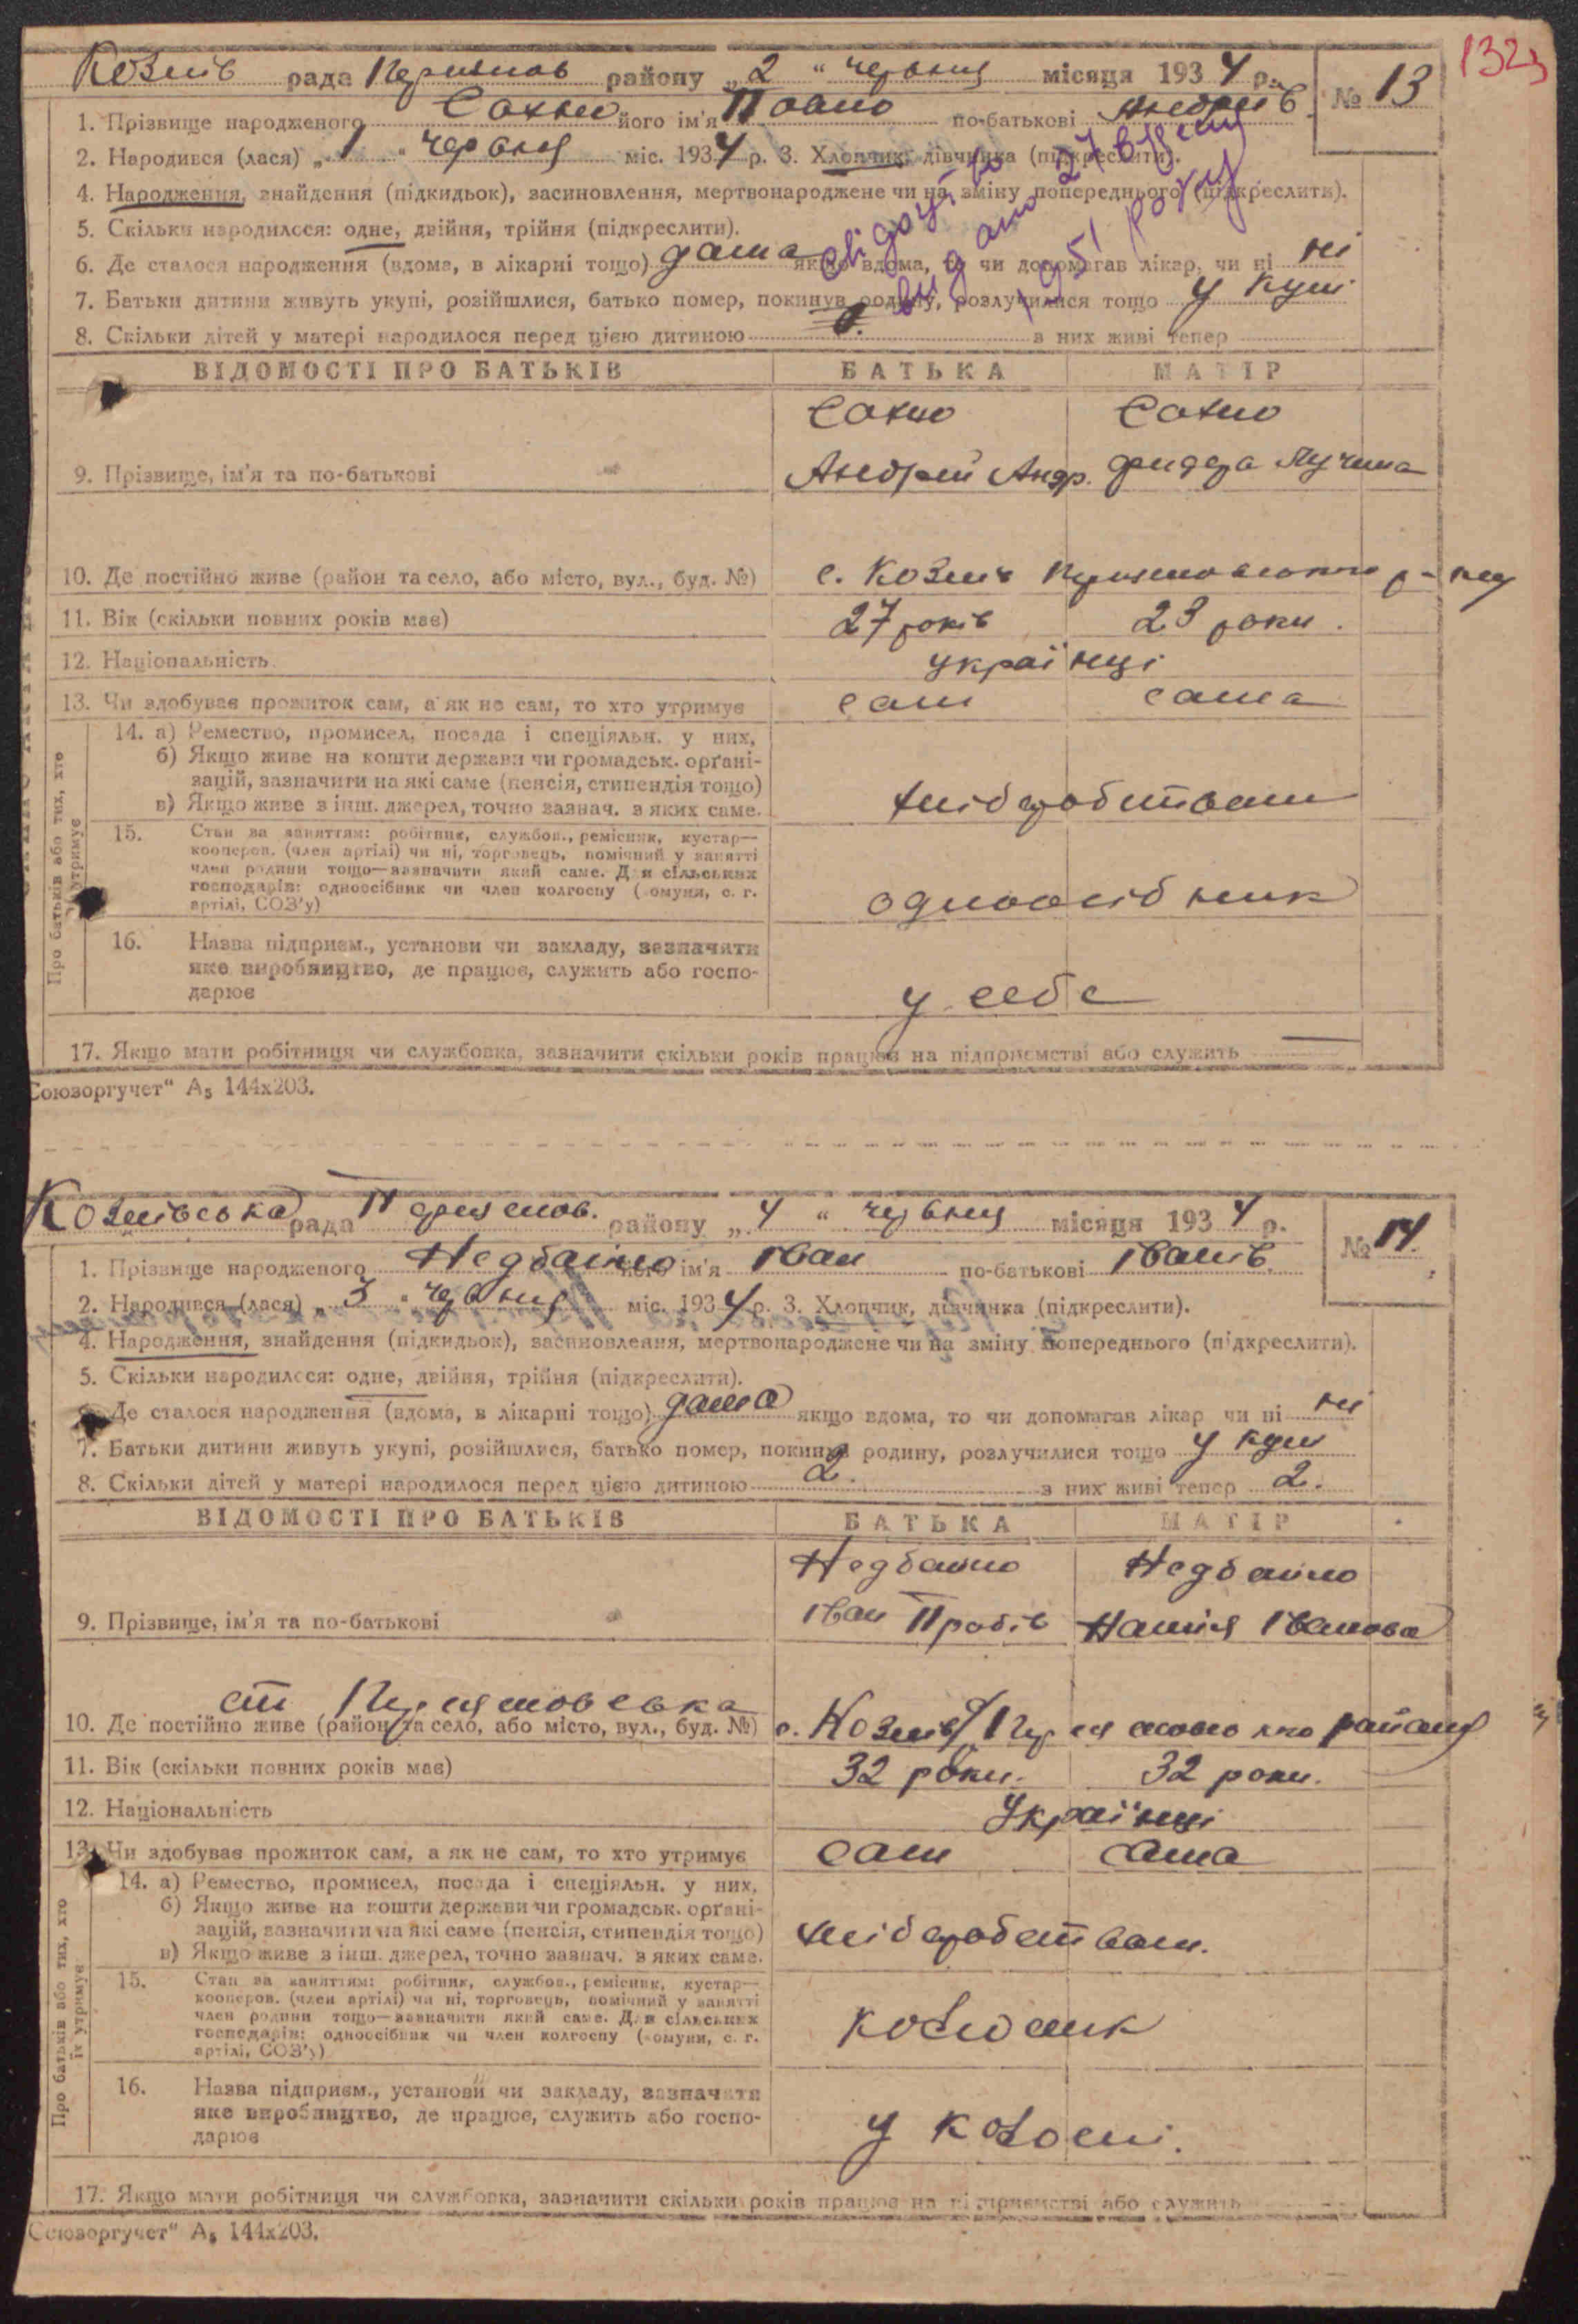 132
рада району „2“ червня місяця 1934 р.
№ 13
1. Прізвище народженого Сахно його ім'я Павло по-батькові Андріїв
2. Народився (лася) „1“ червня міс. 1934 р. 3. Хлопчик, дівчинка (підкреслити).
4. Народження, знайдення (підкидьок), засиновлення, мертвонароджене чи на зміну попереднього (підкреслити).
5. Скільки народилося: одне, двійня, трійня (підкреслити).
6. Де сталося народження (вдома, в лікарні тощо) дома якщо вдома, то чи допомагав лікар, чи ні ні
7. Батьки дитини живуть укупі, розійшлися, батько помер, покинув родину, розлучилися тощо у купі
8. Скільки дітей у матері народилося перед цією дитиною з них живі тепер
видано 27 1951 року
ВІДОМОСТІ ПРО БАТЬКІВ БАТЬКА МАТІР
Сахно Сахно
9. Прізвище, ім'я та по-батькові Андрій Андр.
10. Де постійно живе (район та село, або місто, вул., буд. №) с.
11. Вік (скільки повних років має) 27 років 23 роки.
12. Національність українці
13. Чи здобуває прожиток сам, а як не сам, то хто утримує сам сама
Про батьків або тих, хто їх утримує
14. а) Ремество, промисел, посада і спеціяльн. у них,
б) Якщо живе на кошти держави чи громадськ. орґані-
зацій, зазначити на які саме (пенсія, стипендія тощо)
в) Якщо живе з інш. джерел, точно зазнач. з яких саме.
хліборобством
15. Стан за заняттям: робітник, службов., ремісник, кустар—
кооперов. (член артілі) чи ні, торговець, помічний у занятті
член родини тощо—зазначити який саме. Для сільських
господарів: одноосібник чи член колгоспу (комуни, с. г.
артілі, СОЗ'у)
одноосібник
16. Назва підприєм., установи чи закладу, зазначити
яке виробництво, де працює, служить або госпо-
дарює
у себе
17. Якщо мати робітниця чи службовка, зазначити скільки років працює на підприємстві або служить —
Союзоргучет“ А5 144х203.
рада району „4“ червня місяця 1934 р.
№ 14.
1. Прізвище народженого Недбайло його ім'я Іван по-батькові Іванів.
2. Народився (лася) „3“ червня міс. 1934 р. 3. Хлопчик, дівчинка (підкреслити).
4. Народження, знайдення (підкидьок), засиновлення, мертвонароджене чи на зміну попереднього (підкреслити).
5. Скільки народилося: одне, двійня, трійня (підкреслити).
6. Де сталося народження (вдома, в лікарні тощо) дома якщо вдома, то чи допомагав лікар чи ні ні
7. Батьки дитини живуть укупі, розійшлися, батько помер, покинув родину, розлучилися тощо у купі
8. Скільки дітей у матері народилося перед цією дитиною 2. з них живі тепер 2.
ВІДОМОСТІ ПРО БАТЬКІВ БАТЬКА МАТІР
Недбайло Недбайло
9. Прізвище, ім'я та по-батькові Іван Іванова
10. Де постійно живе (район та село, або місто, вул., буд. №) с. району
11. Вік (скільки повних років має) 32 роки. 32 роки.
12. Національність Українці
13. Чи здобуває прожиток сам, а як не сам, то хто утримує сам сама
Про батьків або тих, хто їх утримує
14. а) Ремество, промисел, посада і спеціяльн. у них,
б) Якщо живе на кошти держави чи громадськ. орґані-
зацій, зазначити на які саме (пенсія, стипендія тощо)
в) Якщо живе з інш. джерел, точно зазнач. з яких саме.
хліборобством.
15. Стан за заняттям: робітник, службов., ремісник, кустар—
кооперов. (член артілі) чи ні, торговець, помічний у занятті
член родини тощо—зазначити який саме. Для сільських
господарів: одноосібник чи член колгоспу (комуни, с. г.
артілі, СОЗ'у)
16. Назва підприєм., установи чи закладу, зазначити
яке виробництво, де працює, служить або госпо-
дарює
у
17. Якщо мати робітниця чи службовка, зазначити скільки років працює на підприємстві або служить
Союзоргучет“ А5 144х203.